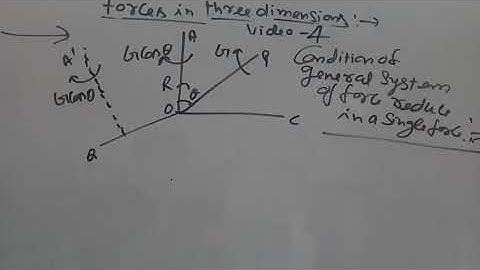 forces in three dimensions:→
Video-4
Condition of
general system
of force reduce
in a single force:=
A
A'
G cosθ
G
P
R
θ
O
C
B